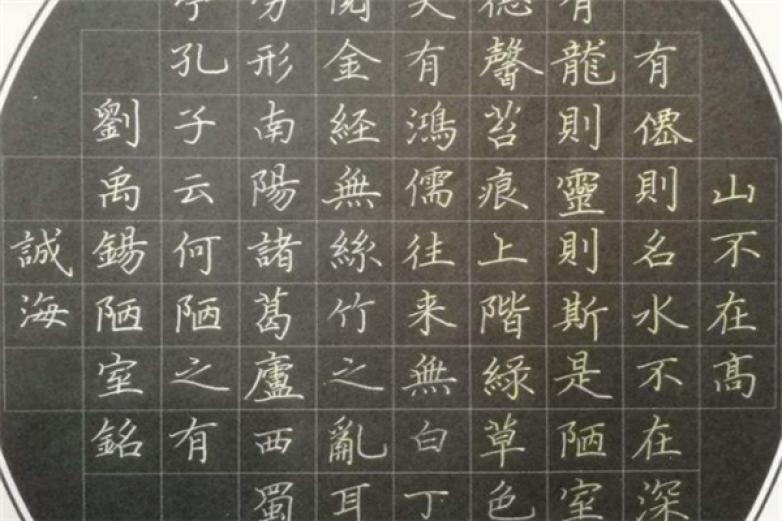 山不在高
有僊則名水不在深
有龍則靈則斯是陋室
德馨苔痕上階綠草色
有鴻儒往来無白丁
金經無絲竹之亂耳
形南陽諸葛廬西蜀
孔子云何陋之有
劉禹錫陋室銘
誠海